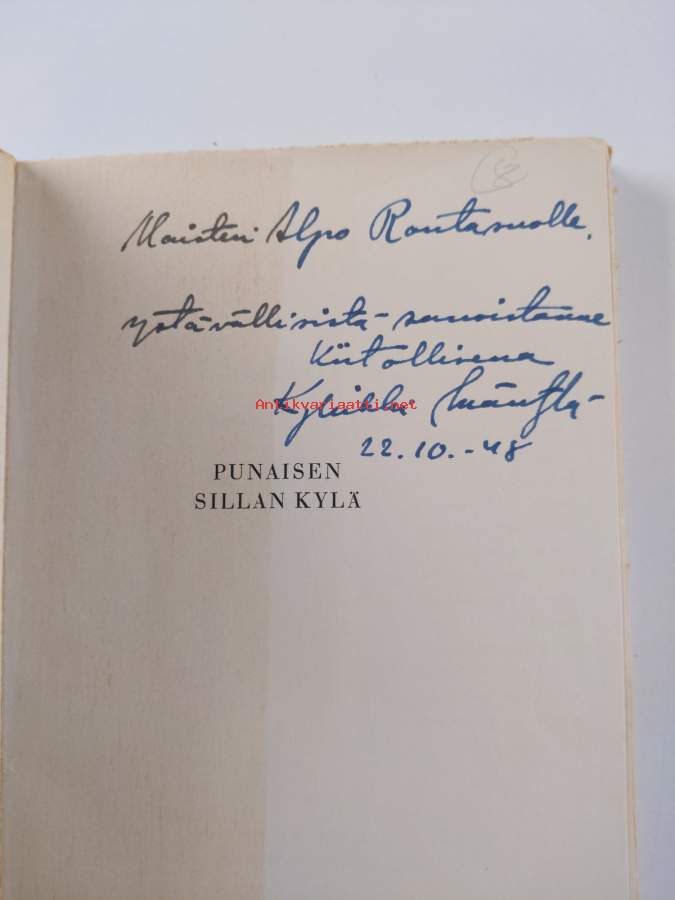 Maisteri Alpo Routasuolle,
ystävällisistä sanoistanne
kiitollisena
Kyllikki Mäntylä
22.10.-48
Antikvariaatti.net
PUNAISEN
SILLAN KYLÄ